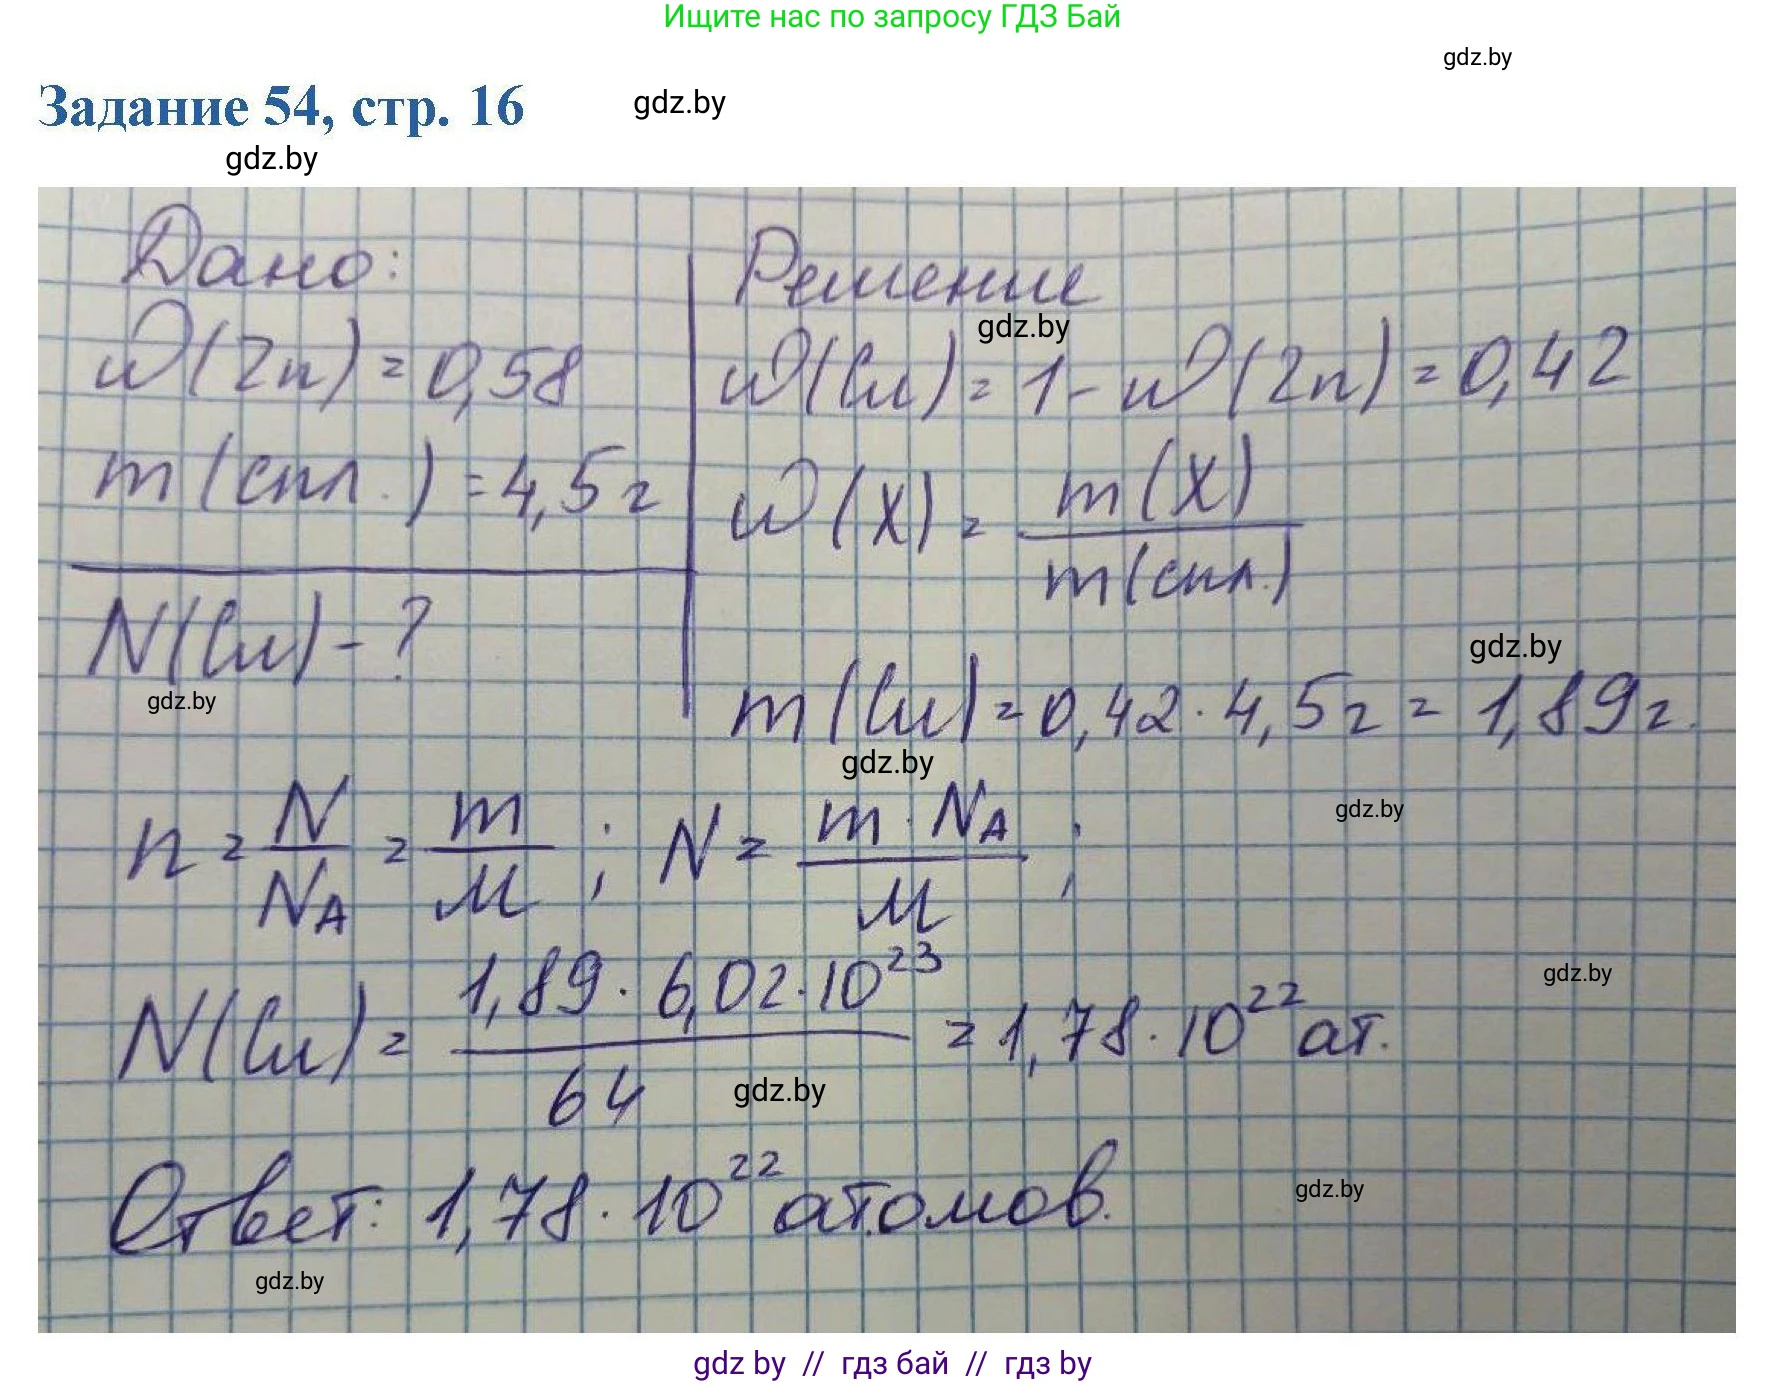 Ищите нас по запросу ГДЗ Бай
gdz.by
Задание 54, стр. 16
gdz.by
gdz.by
Дано:
w(Zn) = 0,58
m(спл.) = 4,5 г
N(Cu) - ?
gdz.by
Решение
gdz.by
w(Cu) = 1 - w(Zn) = 0,42
w(X) = m(X) / m(спл.)
gdz.by
m(Cu) = 0,42 · 4,5 г = 1,89 г.
gdz.by
gdz.by
n = N / N_A = m / M ; N = m · N_A / M ;
gdz.by
N(Cu) = 1,89 · 6,02 · 10²³ / 64 = 1,78 · 10²² ат.
gdz.by
Ответ: 1,78 · 10²² атомов.
gdz.by
gdz.by
gdz by // гдз бай // гдз by